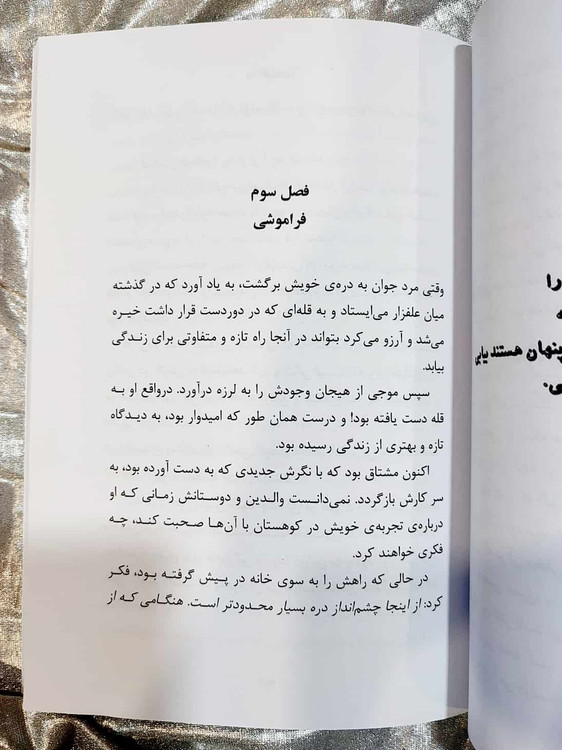 فصل سوم
فراموشی
وقتی مرد جوان به دره‌ی خویش برگشت، به یاد آورد که در گذشته
میان علفزار می‌ایستاد و به قله‌ای که در دوردست قرار داشت خیره
می‌شد و آرزو می‌کرد بتواند در آنجا راه تازه و متفاوتی برای زندگی
بیابد.
سپس موجی از هیجان وجودش را به لرزه درآورد. درواقع او به
قله دست یافته بود! و درست همان طور که امیدوار بود، به دیدگاه
تازه و بهتری از زندگی رسیده بود.
اکنون مشتاق بود که با نگرش جدیدی که به دست آورده بود، به
سر کارش بازگردد. نمی‌دانست والدین و دوستانش زمانی که او
درباره‌ی تجربه‌ی خویش در کوهستان با آن‌ها صحبت کند، چه
فکری خواهند کرد.
در حالی که راهش را به سوی خانه در پیش گرفته بود، فکر
کرد: از اینجا چشم‌انداز دره بسیار محدودتر است. هنگامی که از
را
پنهان هستند بیابی